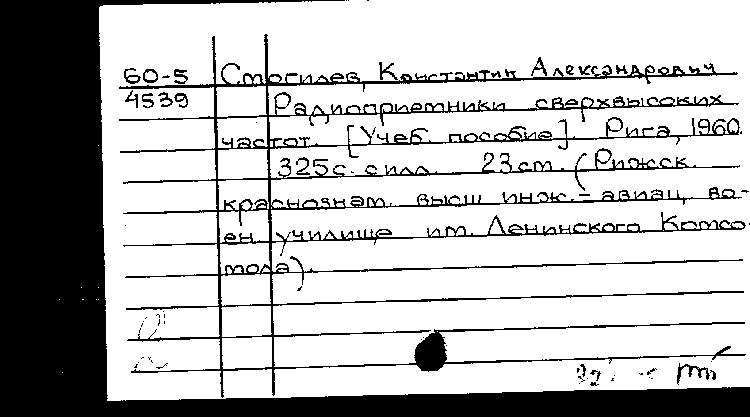 60-5 Стогилев, Константин Александрович
4539 Радиоприемники сверхвысоких
частот. [Учеб. пособие]. Рига, 1960.
325с. с илл. 23см. (Рижск.
краснознам. высш инж.-авиац. во-
ен. училище им. Ленинского Комсо-
мола).